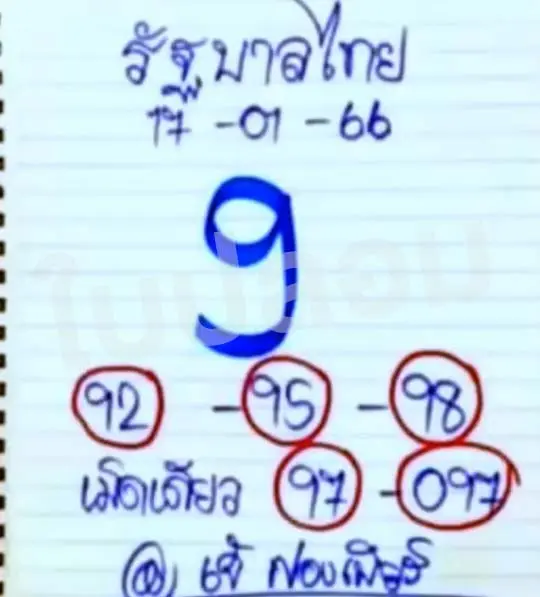 รัฐบาลไทย
17 -01 -66
9
92 -95 -98
เม็ดเดียว 97 -097
เจ๊ ฟองเบียร์